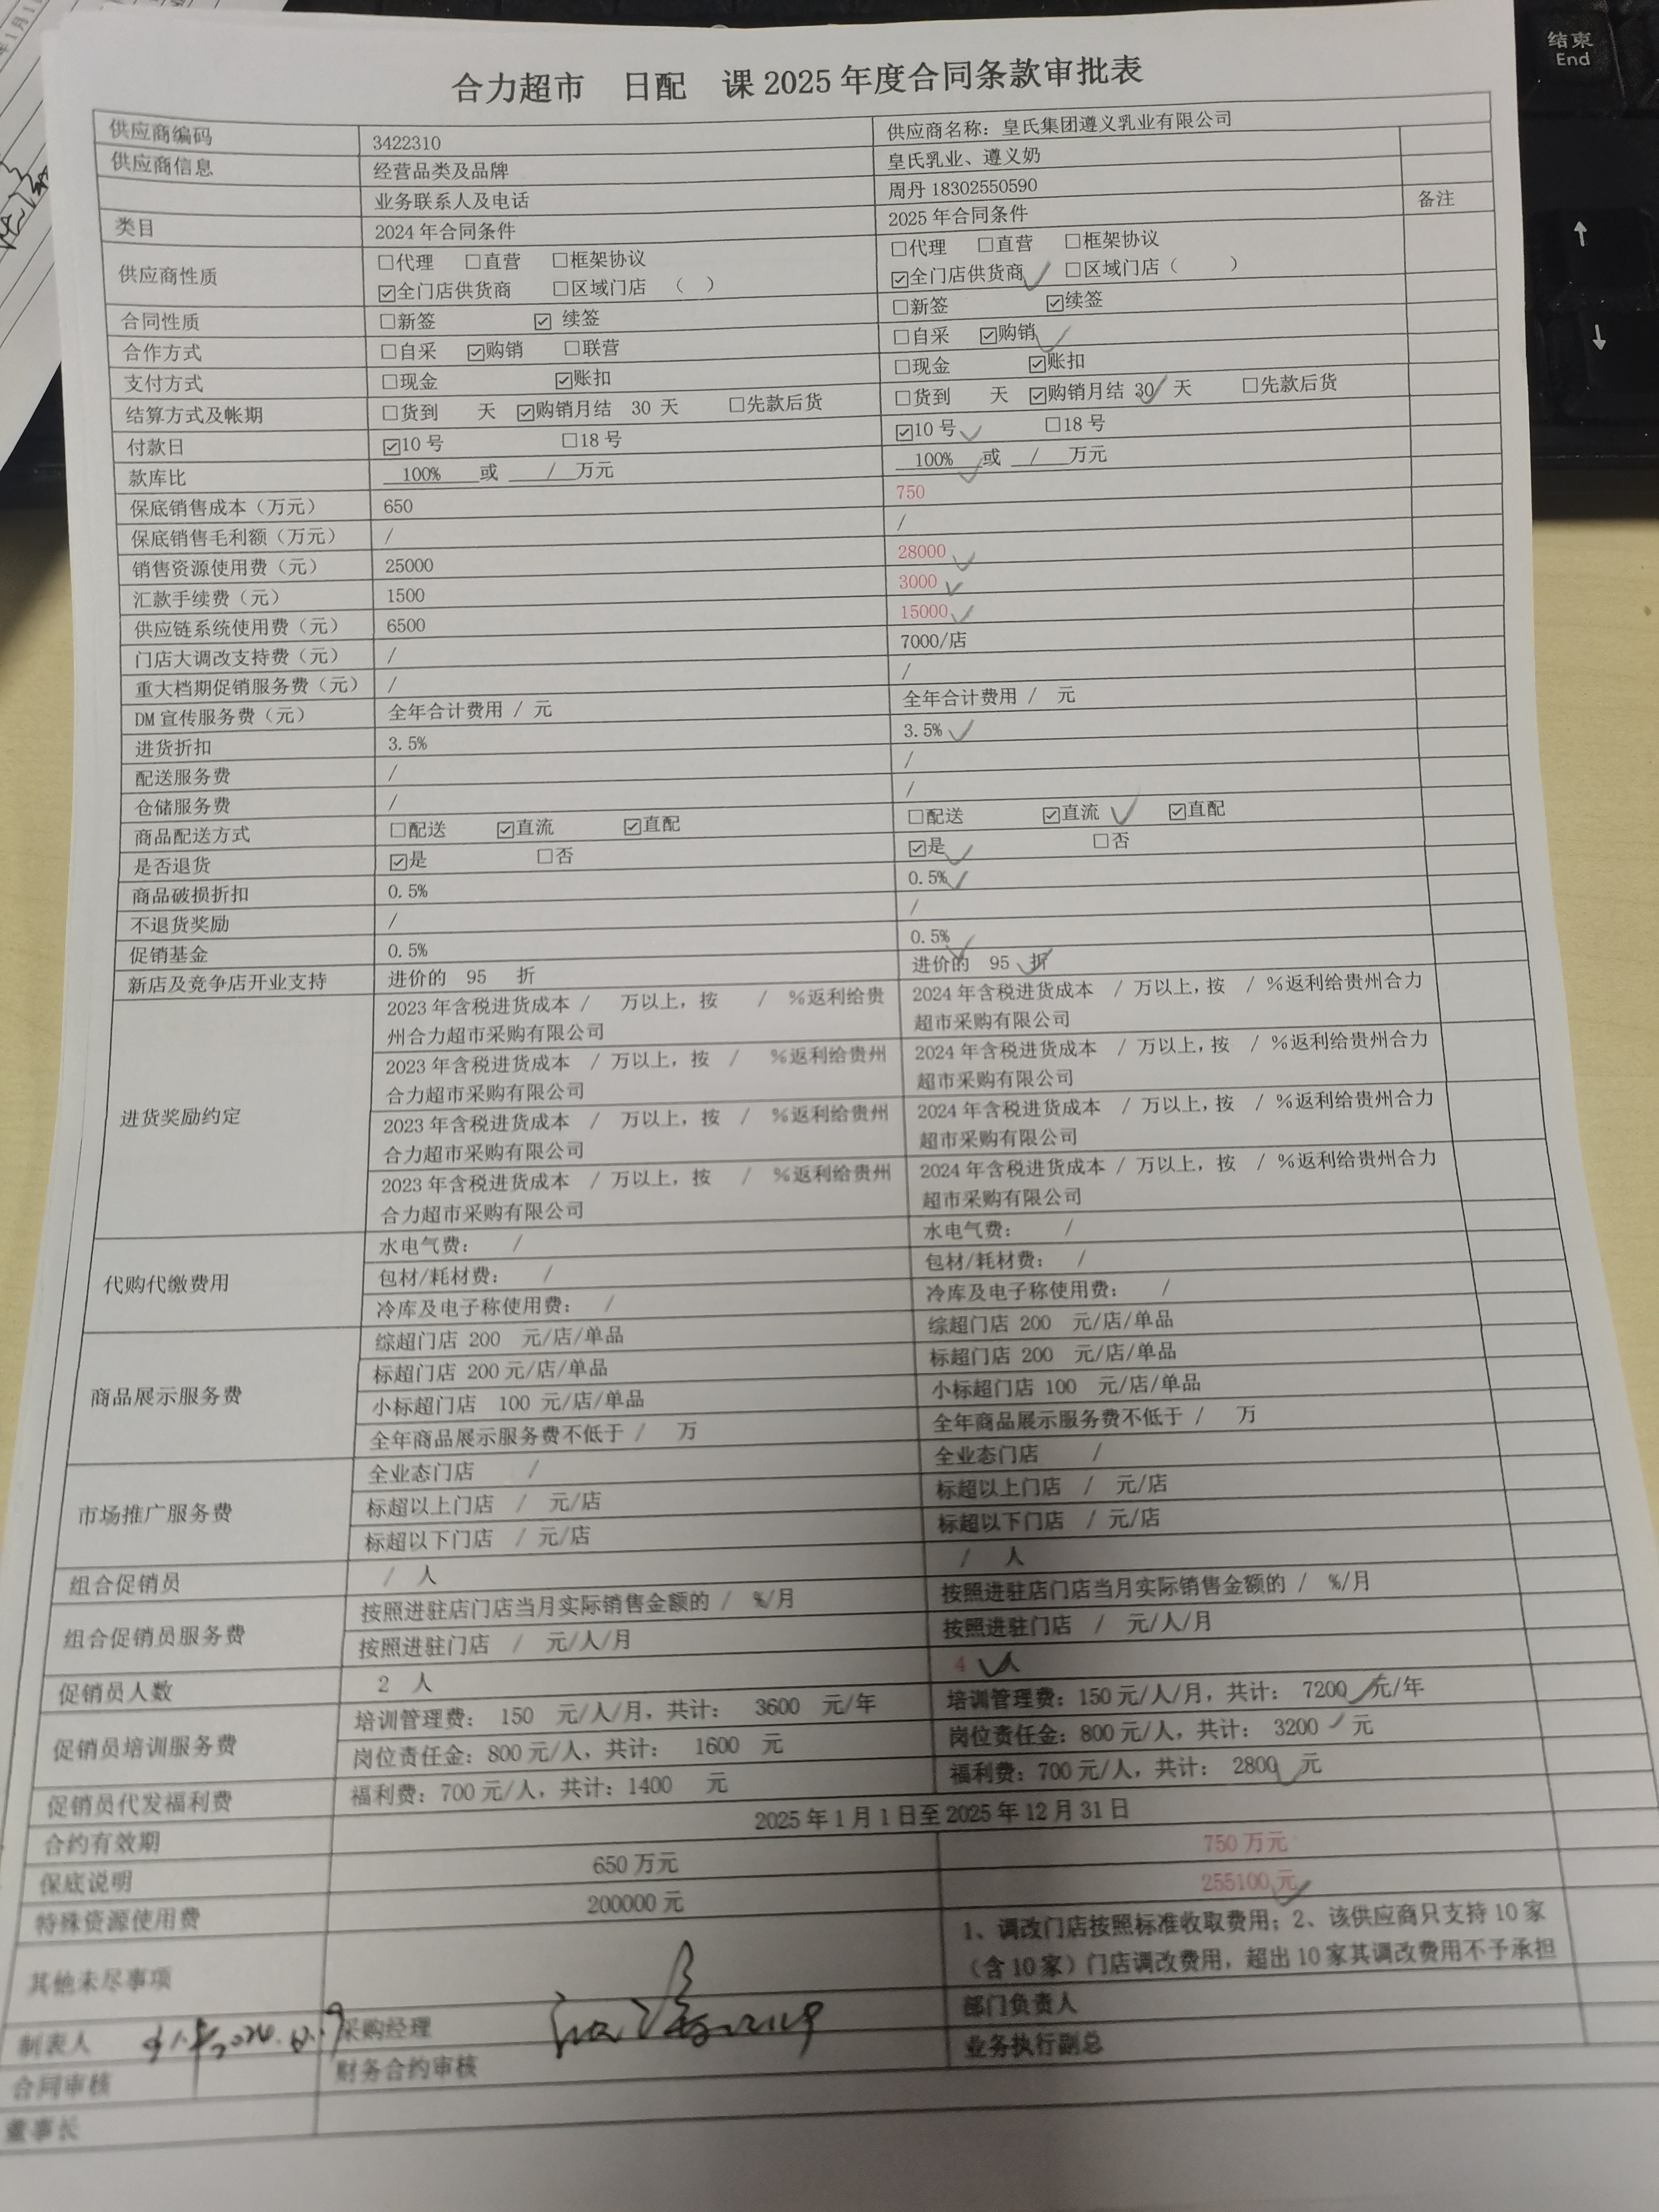 合力超市 日配 课 2025 年度合同条款审批表
供应商编码 3422310 供应商名称：皇氏集团遵义乳业有限公司
供应商信息 经营品类及品牌 皇氏乳业、遵义奶
业务联系人及电话 周丹 18302550590
类目 2024 年合同条件 2025 年合同条件 备注
供应商性质 □代理 □直营 □框架协议 □代理 □直营 □框架协议
☑全门店供货商 □区域门店 （ ） ☑全门店供货商 □区域门店（ ）
合同性质 □新签 ☑ 续签 □新签 ☑续签
合作方式 □自采 ☑购销 □联营 □自采 ☑购销
支付方式 □现金 ☑账扣 □现金 ☑账扣
结算方式及帐期 □货到 天 ☑购销月结 30 天 □先款后货 □货到 天 ☑购销月结 30 天 □先款后货
付款日 ☑10 号 □18 号 ☑10 号 □18 号
款库比 100% 或 / 万元 100% 或 / 万元
保底销售成本（万元） 650 750
保底销售毛利额（万元） / /
销售资源使用费（元） 25000 28000
汇款手续费（元） 1500 3000
供应链系统使用费（元） 6500 15000
门店大调改支持费（元） / 7000/店
重大档期促销服务费（元） / /
DM 宣传服务费（元） 全年合计费用 / 元 全年合计费用 / 元
进货折扣 3.5% 3.5%
配送服务费 / /
仓储服务费 / /
商品配送方式 □配送 ☑直流 ☑直配 □配送 ☑直流 ☑直配
是否退货 ☑是 □否 ☑是 □否
商品破损折扣 0.5% 0.5%
不退货奖励 / /
促销基金 0.5% 0.5%
新店及竞争店开业支持 进价的 95 折 进价的 95 折
进货奖励约定
2023 年含税进货成本 / 万以上，按 / %返利给贵 2024 年含税进货成本 / 万以上，按 / %返利给贵州合力
州合力超市采购有限公司 超市采购有限公司
2023 年含税进货成本 / 万以上，按 / %返利给贵州 2024 年含税进货成本 / 万以上，按 / %返利给贵州合力
合力超市采购有限公司 超市采购有限公司
2023 年含税进货成本 / 万以上，按 / %返利给贵州 2024 年含税进货成本 / 万以上，按 / %返利给贵州合力
合力超市采购有限公司 超市采购有限公司
2023 年含税进货成本 / 万以上，按 / %返利给贵州 2024 年含税进货成本 / 万以上，按 / %返利给贵州合力
合力超市采购有限公司 超市采购有限公司
代购代缴费用
水电气费： / 水电气费： /
包材/耗材费： / 包材/耗材费： /
冷库及电子称使用费： / 冷库及电子称使用费： /
商品展示服务费
综超门店 200 元/店/单品 综超门店 200 元/店/单品
标超门店 200 元/店/单品 标超门店 200 元/店/单品
小标超门店 100 元/店/单品 小标超门店 100 元/店/单品
全年商品展示服务费不低于 / 万 全年商品展示服务费不低于 / 万
市场推广服务费
全业态门店 / 全业态门店 /
标超以上门店 / 元/店 标超以上门店 / 元/店
标超以下门店 / 元/店 标超以下门店 / 元/店
组合促销员 / 人 / 人
组合促销员服务费
按照进驻店门店当月实际销售金额的 / %/月 按照进驻店门店当月实际销售金额的 / %/月
按照进驻门店 / 元/人/月 按照进驻门店 / 元/人/月
促销员人数 2 人 4 人
促销员培训服务费
培训管理费： 150 元/人/月，共计： 3600 元/年 培训管理费：150 元/人/月，共计： 7200 元/年
岗位责任金：800 元/人，共计： 1600 元 岗位责任金：800 元/人，共计： 3200 元
促销员代发福利费 福利费：700 元/人，共计：1400 元 福利费：700 元/人，共计： 2800 元
合约有效期 2025 年 1 月 1 日至 2025 年 12 月 31 日
保底说明 650 万元 750 万元
特殊资源使用费 200000 元 255100 元
其他未尽事项
1、调改门店按照标准收取费用；2、该供应商只支持 10 家
（含 10 家）门店调改费用，超出 10 家其调改费用不予承担
制表人 采购经理 部门负责人
合同审核 财务合约审核 业务执行副总
董事长
结束
End
↑
↓